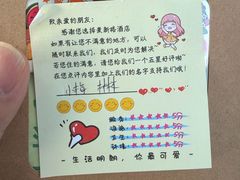 致亲爱的朋友:
感谢您选择莱新路酒店
如果有让您不满意的地方,可以
随时联系我们,我们及时为您解决
若您住的满意,请您给我们一个五星好评啦!
在您点评内容里加上我们的名字支持我们哦!
5分
5分
5分
5分
- 生活明朗,你最可爱 -